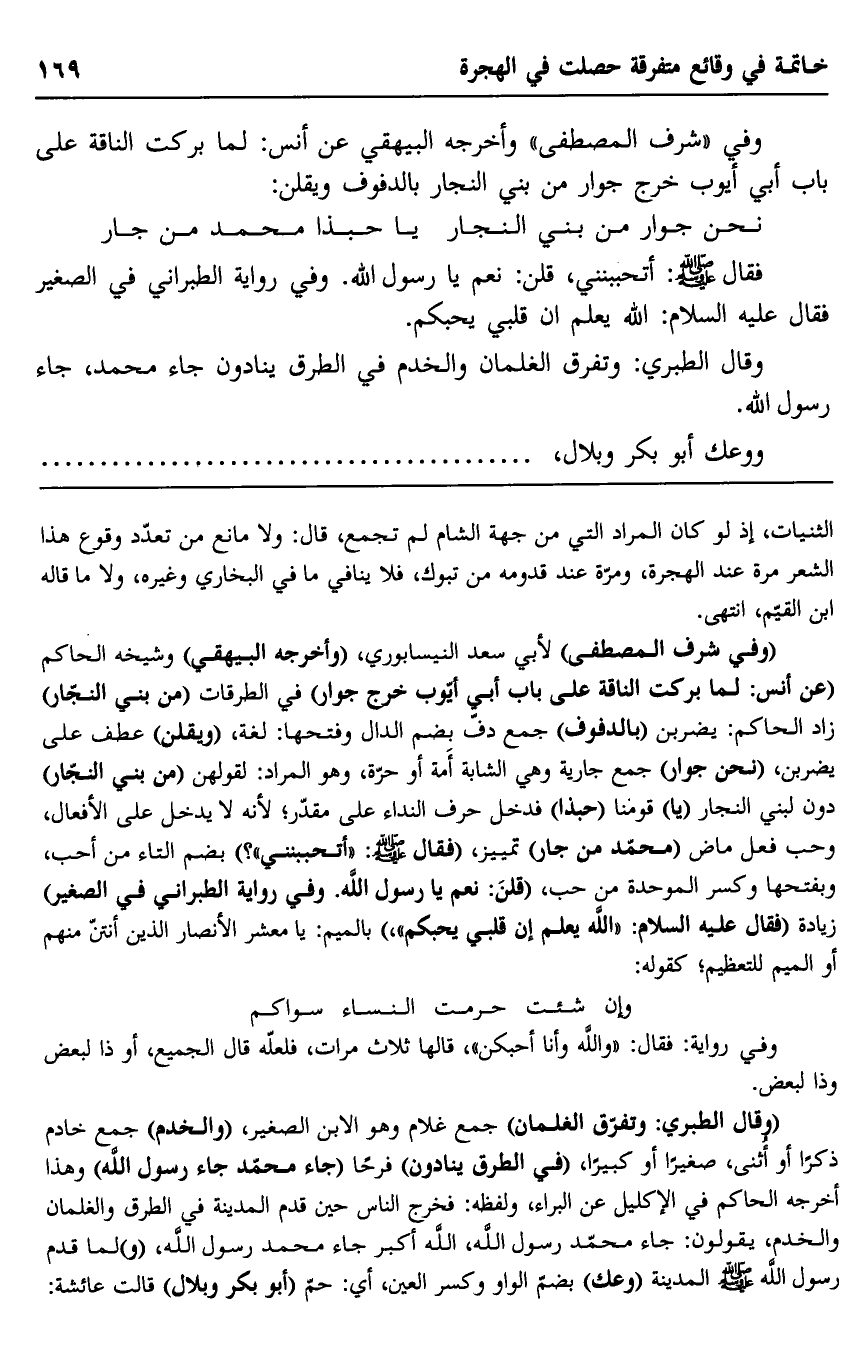 خاتمة في وقائع متفرقة حصلت في الهجرة ١٦٩
وفي «شرف المصطفى» وأخرجه البيهقي عن أنس: لما بركت الناقة على
باب أبي أيوب خرج جوار من بني النجار بالدفوف ويقلن:
نحن جوار من بني النجار يا حبذا محمد من جار
فقال ﷺ: أتحببنني، قلن: نعم يا رسول الله. وفي رواية الطبراني في الصغير
فقال عليه السلام: الله يعلم ان قلبي يحبكم.
وقال الطبري: وتفرق الغلمان والخدم في الطرق ينادون جاء محمد، جاء
رسول الله.
ووعك أبو بكر وبلال، .........................................
الثنيات، إذ لو كان المراد التي من جهة الشام لم تجمع، قال: ولا مانع من تعدّد وقوع هذا
الشعر مرة عند الهجرة، ومرّة عند قدومه من تبوك، فلا ينافي ما في البخاري وغيره، ولا ما قاله
ابن القيّم، انتهى.
(وفي شرف المصطفى) لأبي سعد النيسابوري، (وأخرجه البيهقي) وشيخه الحاكم
(عن أنس: لما بركت الناقة على باب أبي أيّوب خرج جوار) في الطرقات (من بني النجّار)
زاد الحاكم: يضربن (بالدفوف) جمع دفّ بضم الدال وفتحها: لغة، (ويقلن) عطف على
يضربن، (نحن جوار) جمع جارية وهي الشابة أمة أو حرّة، وهو المراد: لقولهن (من بني النجّار)
دون لبني النجار (يا) قومنا (حبذا) فدخل حرف النداء على مقدّر؛ لأنه لا يدخل على الأفعال،
وحب فعل ماض (محمّد من جار) تمييز، (فقال ﷺ: «أتحببنني»؟) بضم التاء من أحب،
وبفتحها وكسر الموحدة من حب، (قلنَ: نعم يا رسول اللَّه. وفي رواية الطبراني في الصغير)
زيادة (فقال عليه السلام: «اللَّه يعلم إن قلبي يحبكم»،) بالميم: يا معشر الأنصار الذين أنتنّ منهم
أو الميم للتعظيم؛ كقوله:
وإن شئت حرمت النساء سواكم
وفي رواية: فقال: «واللَّه وأنا أحبكن»، قالها ثلاث مرات، فلعلّه قال الجميع، أو ذا لبعض
وذا لبعض.
(وقال الطبري: وتفرّق الغلمان) جمع غلام وهو الابن الصغير، (والخدم) جمع خادم
ذكرًا أو أُنثى، صغيرًا أو كبيرًا، (في الطرق ينادون) فرحًا (جاء محمّد جاء رسول اللَّه) وهذا
أخرجه الحاكم في الإكليل عن البراء، ولفظه: فخرج الناس حين قدم المدينة في الطرق والغلمان
والخدم، يقولون: جاء محمّد رسول اللَّه، اللَّه أكبر جاء محمد رسول اللَّه، (و)لما قدم
رسول اللَّه ﷺ المدينة (وعك) بضمّ الواو وكسر العين، أي: حمّ (أبو بكر وبلال) قالت عائشة: